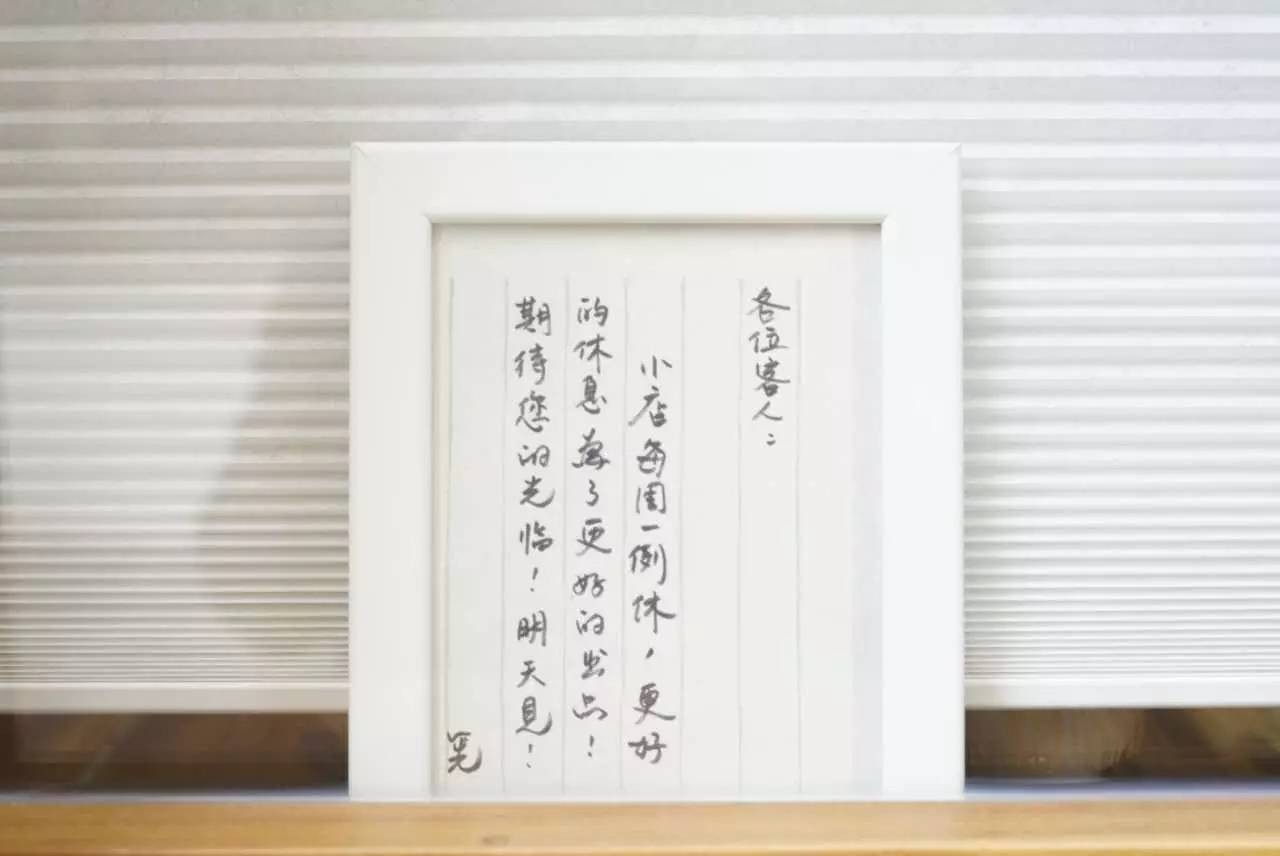 各位客人：
小店每周一例休，更好
的休息為了更好的出品！
期待您的光临！明天見！